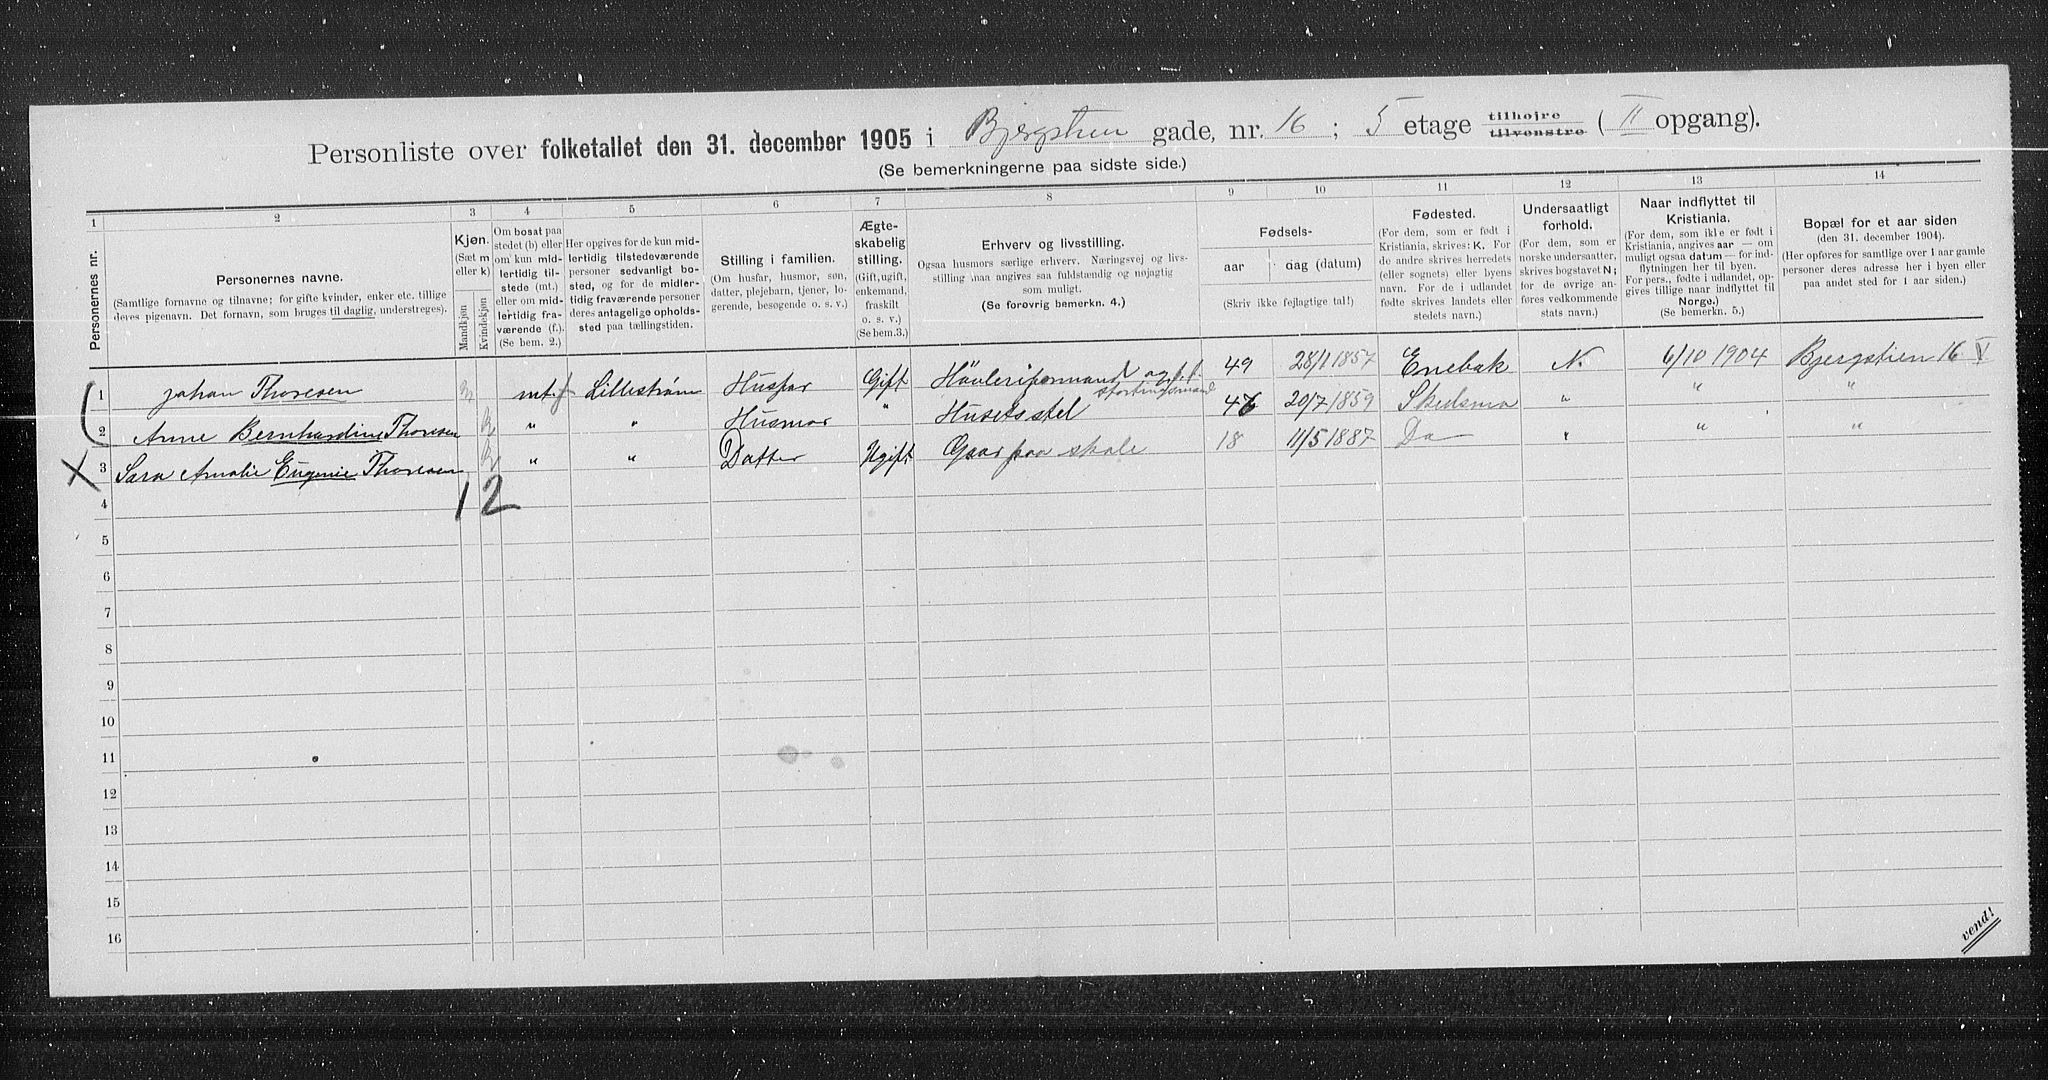 Personliste over folketallet den 31. december 1905 i Bjergstien gade, nr. 16 ; 5 etage tilhøjre tilvenstre ( II opgang).
(Se bemerkningerne paa sidste side.)
1 2 3 4 5 6 7 8 9 10 11 12 13 14
Personernes nr.
Personernes navne.
(Samtlige fornavne og tilnavne; for gifte kvinder, enker etc. tillige
deres pigenavn. Det fornavn, som bruges til daglig, understreges).
Kjøn.
(Sæt m
eller k)
Mandkjøn
Kvindekjøn
Om bosat paa
stedet (b) eller
om kun mid-
lertidig til-
stede (mt.)
eller om mid-
lertidig fra-
værende (f.).
(Se bem. 2.)
Her opgives for de kun mid-
lertidig tilstedeværende
personer sedvanligt bo-
sted, og for de midler-
tidig fraværende personer
deres antagelige opholds-
sted paa tællingstiden.
Stilling i familien.
(Om husfar, husmor, søn,
datter, plejebarn, tjener, lo-
gerende, besøgende o. s. v.)
Ægte-
skabelig
stilling.
(Gift, ugift,
enkemand,
fraskilt
o. s. v.)
(Se bem.3.)
Erhverv og livsstilling.
Ogsaa husmors særlige erhverv. Næringsvej og livs-
stilling maa angives saa fuldstændig og nøjagtig
som muligt.
(Se forøvrig bemerkn. 4.)
Fødsels-
aar
dag (datum)
(Skriv ikke fejlagtige tal!)
Fødested.
(For dem, som er født i
Kristiania, skrives: K. For
de andre skrives herredets
(eller sognets) eller byens
navn. For de i udlandet
fødte skrives landets eller
stedets navn.)
Undersaatligt
forhold.
(For dem, som er
norske undersaatter,
skrives bogstavet N;
for de øvrige an-
føres vedkommende
stats navn.)
Naar indflyttet til
Kristiania.
(For dem, som ikke er født i
Kristiania, angives aar — om
muligt ogsaa datum — for ind-
flytningen her til byen.
For pers., fødte i udlandet, op-
gives tillige naar indflyttet til
Norge.)
(Se bemerkn. 5.)
Bopæl for et aar siden
(den 31. december 1904).
(Her opføres for samtlige over 1 aar gamle
personer deres adresse her i byen eller
paa andet sted for 1 aar siden.)
1 Johan Thoresen m mt. Lillestrøm Husfar Gift Høvleriformand og 49 28/1 1857 Enebak N. 6/10 1904 Bjergstien 16 V
2 Anne Bernhardine Thoresen k " " Husmor " Husets stel 46 20/7 1859 Skedsmo " " "
X 3 Sara Amalie Eugenie Thoresen k " " Datter Ugift Gaar paa skole 18 11/5 1887 Do " " "
1 2
4
5
6
7
8
9
10
11
12
13
14
15
16
vend!